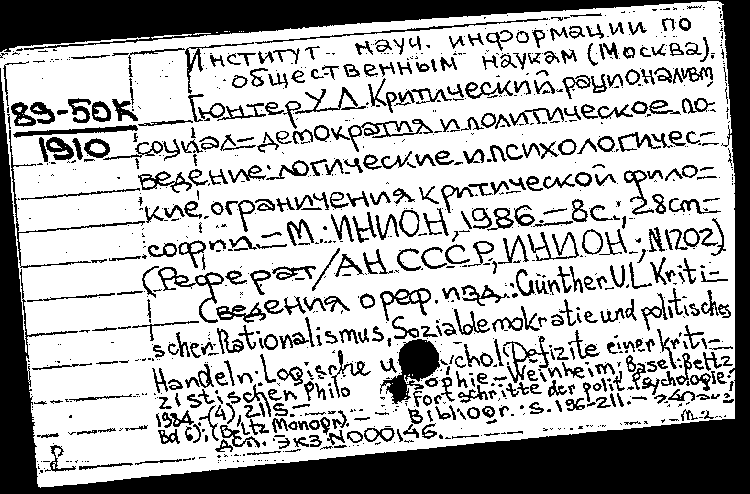 Институт науч. информации по
общественным наукам (Москва).
89-50К
1910
Гюнтер У Л Критический рационализм
социал-демократия и политическое по-
ведение: логические и психологичес-
кие ограничения критической фило-
софии. - М.: ИНИОН, 1986. - 8с.; 28см -
(Реферат/АН СССР, ИНИОН; №1202)
Сведения о реф. изд.: Günther U.L. Kriti-
scher Rationalismus, Sozialdemokratie und politisches
Handeln: Logische u ychol. Defizite einer kriti-
zistischen Philo sophie. - Weinheim; Basel: Beltz
1984. - (4), 211 S. - Fortschritte der polit. Psychologie;
Bd 6); (Beltz Monogr.). - Bibliogr.: s. 196-211. -
Деп. экз. N000146.